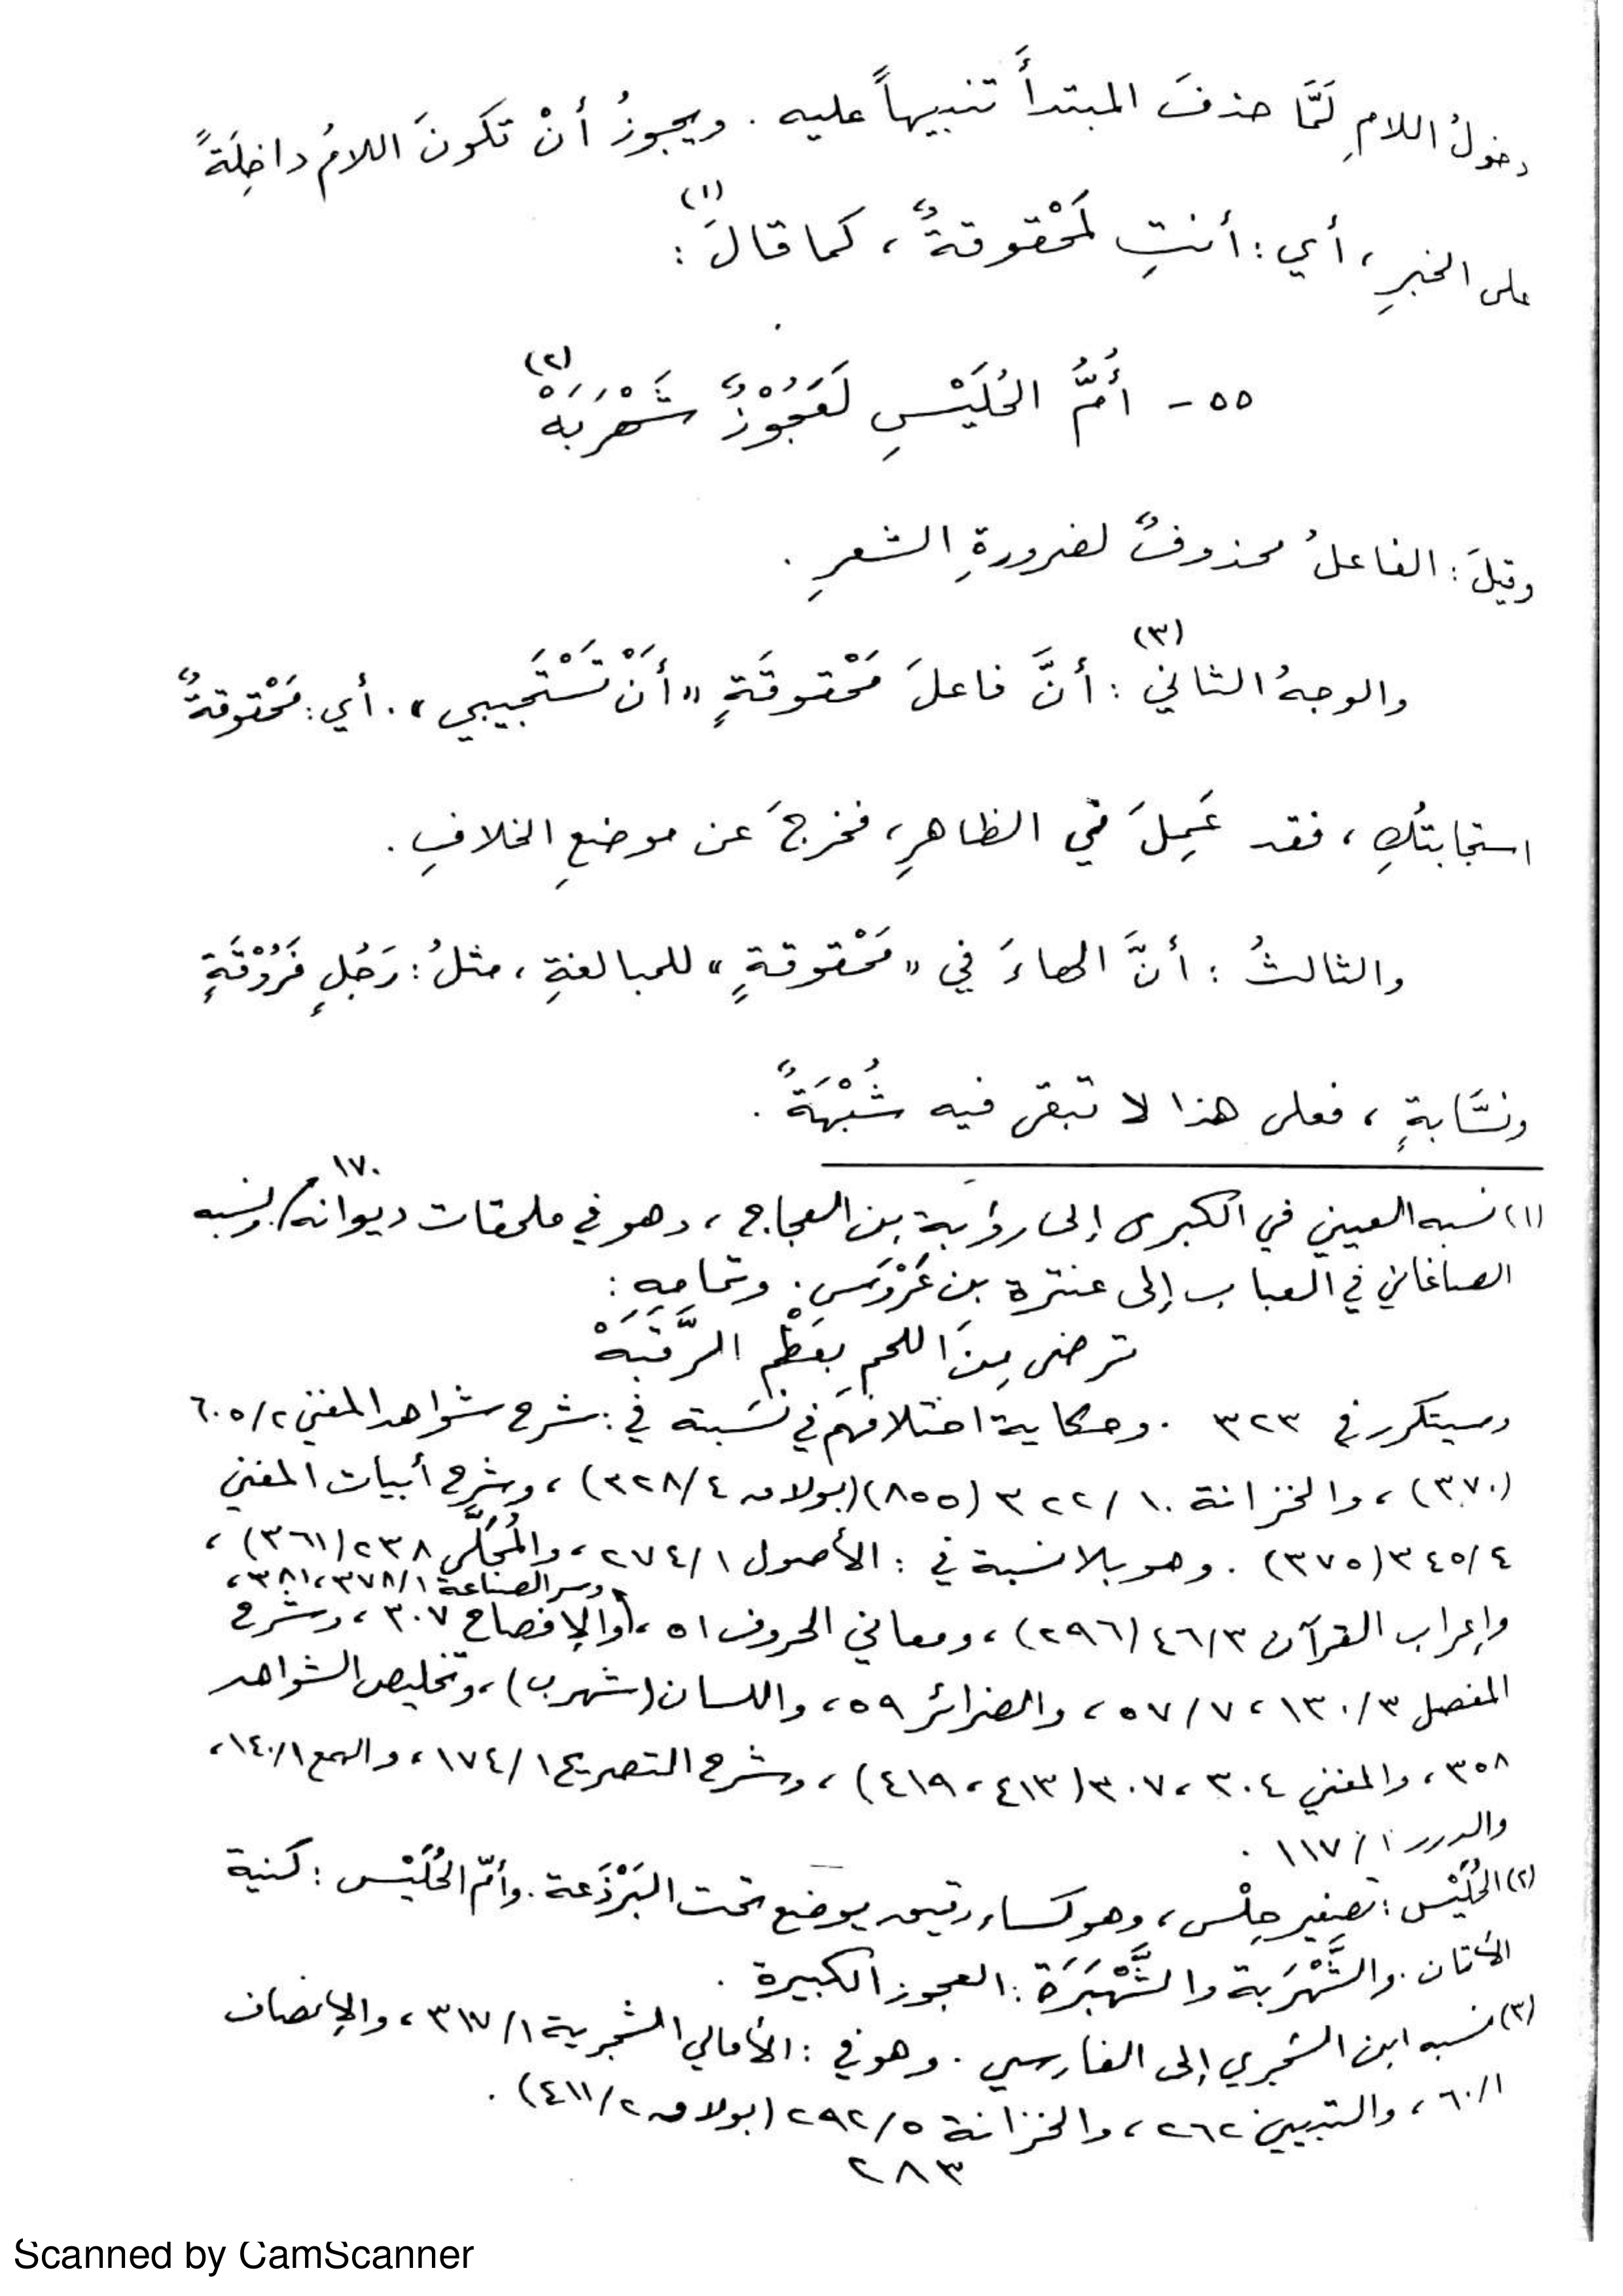 دخولُ اللامِ لَمَّا حذفَ المبتدأَ تنبيهاً عليه . ويجوزُ أنْ تكونَ اللامُ داخِلَةً
على الخبرِ ، أي : أنتِ لَمَحْقوقةٌ ، كما قالَ (١) :
٥٥ - أُمُّ الحُلَيْسِ لَعَجُوْزٌ شَهْرَبَهْ (٢)
وقيلَ : الفاعلُ محذوفٌ لضرورةِ الشعرِ .
والوجهُ الثاني (٣) : أنَّ فاعلَ مَحْقوقَةٍ « أَنْ تَسْتَجيبي » . أي : مَحْقوقةٌ
استجابتُكِ ، فقد عَمِلَ في الظاهرِ ، فخرجَ عن موضعِ الخلافِ .
والثالثُ : أنَّ الهاءَ في « مَحْقوقةٍ » للمبالغةِ ، مثلُ : رَجُلٍ فَرُوْقَةٍ
ونسَّابةٍ ، فعلى هذا لا تبقى فيه شُبْهَةٌ .
(١) نسبه العيني في الكبرى إلى رؤبة بن العجاج ، وهو في ملحقات ديوانه / ١٧٠ ونسبه
الصاغاني في العباب إلى عنترة بن عَرْوَس . وتمامه :
ترضى مِنَ اللحمِ بعَظْمِ الرَّقَبَهْ
وسيتكرر في ٣٢٣ . وحكاية اختلافهم في نسبته في : شرح شواهد المغني ٦٠٥/٢
(٣٧٠) ، والخزانة ٣٢٢/١٠ (٨٥٥) (بولاق ٣٢٨/٤) ، وشرح أبيات المغني
٣٤٥/٤ (٣٧٥) . وهو بلا نسبة في : الأصول ٢٧٤/١ ، والمُحَلَّى ٢٣٨ (٣٦١) ،
وسر الصناعة ٣٧٨/١ ، ٣٨١ ،
وإعراب القرآن ٤٦/٣ (٢٩٦) ، ومعاني الحروف ٥١ ، والإفصاح ٣٠٧ ، وشرح
المفصل ١٣٠/٣ ، ٥٧/٧ ، والضرائر ٥٩ ، واللسان (شهرب) ، وتخليص الشواهد
٣٥٨ ، والمغني ٣٠٤ ، ٣٠٧ (٤١٣ ، ٤١٩) ، وشرح التصريح ١٧٤/١ ، والهمع ١٤٠/١ ،
والدرر ١١٧/١ .
(٢) الحُلَيْس : تصغير حِلْس ، وهو كساء رقيق يوضع تحت البَرْذَعة . وأمّ الحُلَيْس : كنية
الأتان . والشَّهْرَبة والشَّهْبَرَة : العجوز الكبيرة .
(٣) نسبه ابن الشجري إلى الفارسي . وهو في : الأمالي الشجرية ٣١٧/١ ، والإنصاف
٦٠/١ ، والتبيين ٢٦٢ ، والخزانة ٢٩٢/٥ (بولاق ٤١١/٢) .
٢٨٣
Scanned by CamScanner